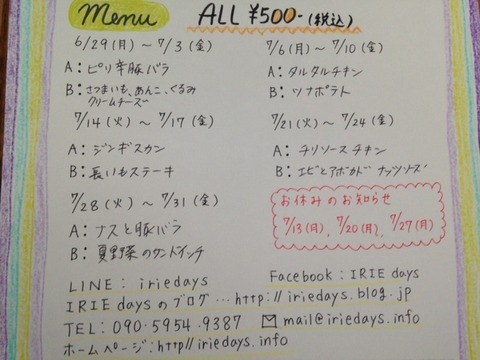 Menu ALL ¥500-(税込)
6/29(月)~7/3(金)
A:ピリ辛豚バラ
B:さつまいも、あんこ、くるみ
クリームチーズ
7/6(月)~7/10(金)
A:タルタルチキン
B:ツナポテト
7/14(火)~7/17(金)
A:ジンギスカン
B:長いもステーキ
7/21(火)~7/24(金)
A:チリソースチキン
B:エビとアボカド ナッツソース
7/28(火)~7/31(金)
A:ナスと豚バラ
B:夏野菜のサンドイッチ
お休みのお知らせ
7/13(月)、7/20(月)、7/27(月)
LINE: iriedays
Facebook:IRIE days
IRIE daysのブログ…http://iriedays.blog.jp
TEL:090-5954-9387 mail@iriedays.info
ホームページ:http//iriedays.info